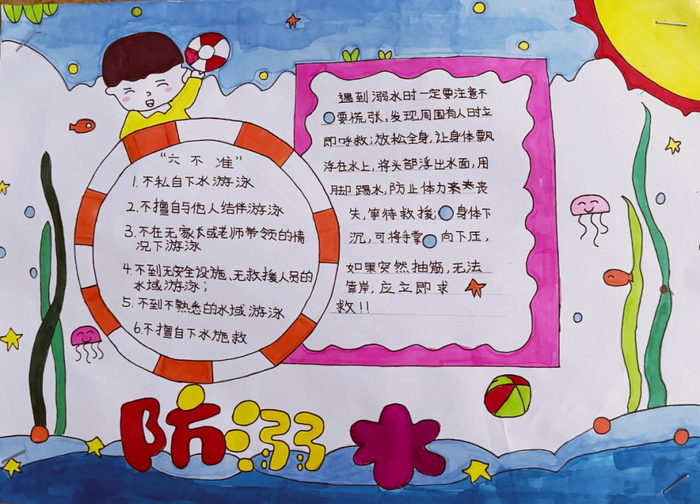 “六不准”
1.不私自下水游泳
2.不擅自与他人结伴游泳
3.不在无家长或老师带领的情
况下游泳
4.不到无安全设施、无救援人员的
水域游泳;
5.不到不熟悉的水域游泳
6.不擅自下水施救
遇到溺水时一定要注意不
要慌张,发现周围有人时立
即呼救;放松全身,让身体飘
浮在水上,将头部浮出水面,用
脚踢水,防止体力丧丧
失,等待救援,身体下
沉,可将手掌向下压,
如果突然抽筋,无法
靠岸,应立即求
救!!
防溺水